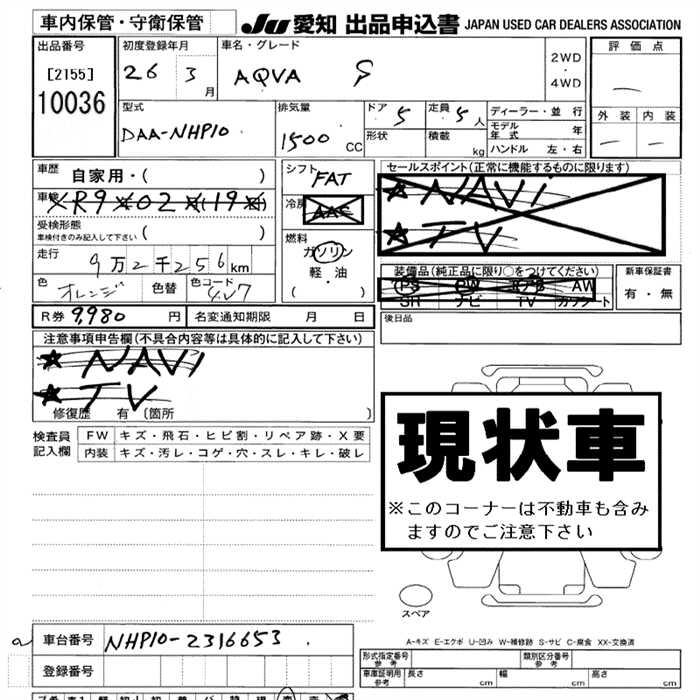 車内保管・守衛保管
JU 愛知 出品申込書 JAPAN USED CAR DEALERS ASSOCIATION
出品番号
[2155]
10036
初度登録年月
26 3月
車名・グレード
AQVA S
2WD
・
4WD
評価点
—
外装 内装
— —
型式
DAA-NHP10
排気量
1500 CC
ドア 5
形状
定員 5人
積載 kg
ディーラー・並行
モデル年式 年
ハンドル 左・右
車歴 自家用・( )
車検 R9 02 (19
受検形態
車検付きのみ記入して下さい ( )
走行
9万2千256km
色 オレンジ 色替 色コード 4V7
シフト
FAT
冷房
AAC
燃料
ガソリン
軽・油
( )
セールスポイント(正常に機能するものに限ります)
★ NAVI
★ TV
装備品(純正品に限り○をつけてください)
PS PW エアB AW
SR ナビ TV カワシート
新車保証書
有・無
R券 9,980 円 名変通知期限 月 日
後日品
注意事項申告欄(不具合内容等は具体的に記入して下さい)
★ NAVI
★ TV
修復歴 有 〔箇所 〕
検査員
記入欄
FW キズ・飛石・ヒビ割・リペア跡・X要
内装 キズ・汚レ・コゲ・穴・スレ・キレ・破レ
現状車
※このコーナーは不動車も含み
ますのでご注意下さい
スペア
A-キズ E-エクボ U-凹み W-補修跡 S-サビ C-腐食 XX-交換済
車台番号 NHP10-2316653
登録番号
形式指定番号
参考
類別区分番号
参考
車庫証明用
参考
長さ cm 幅 cm 高さ cm